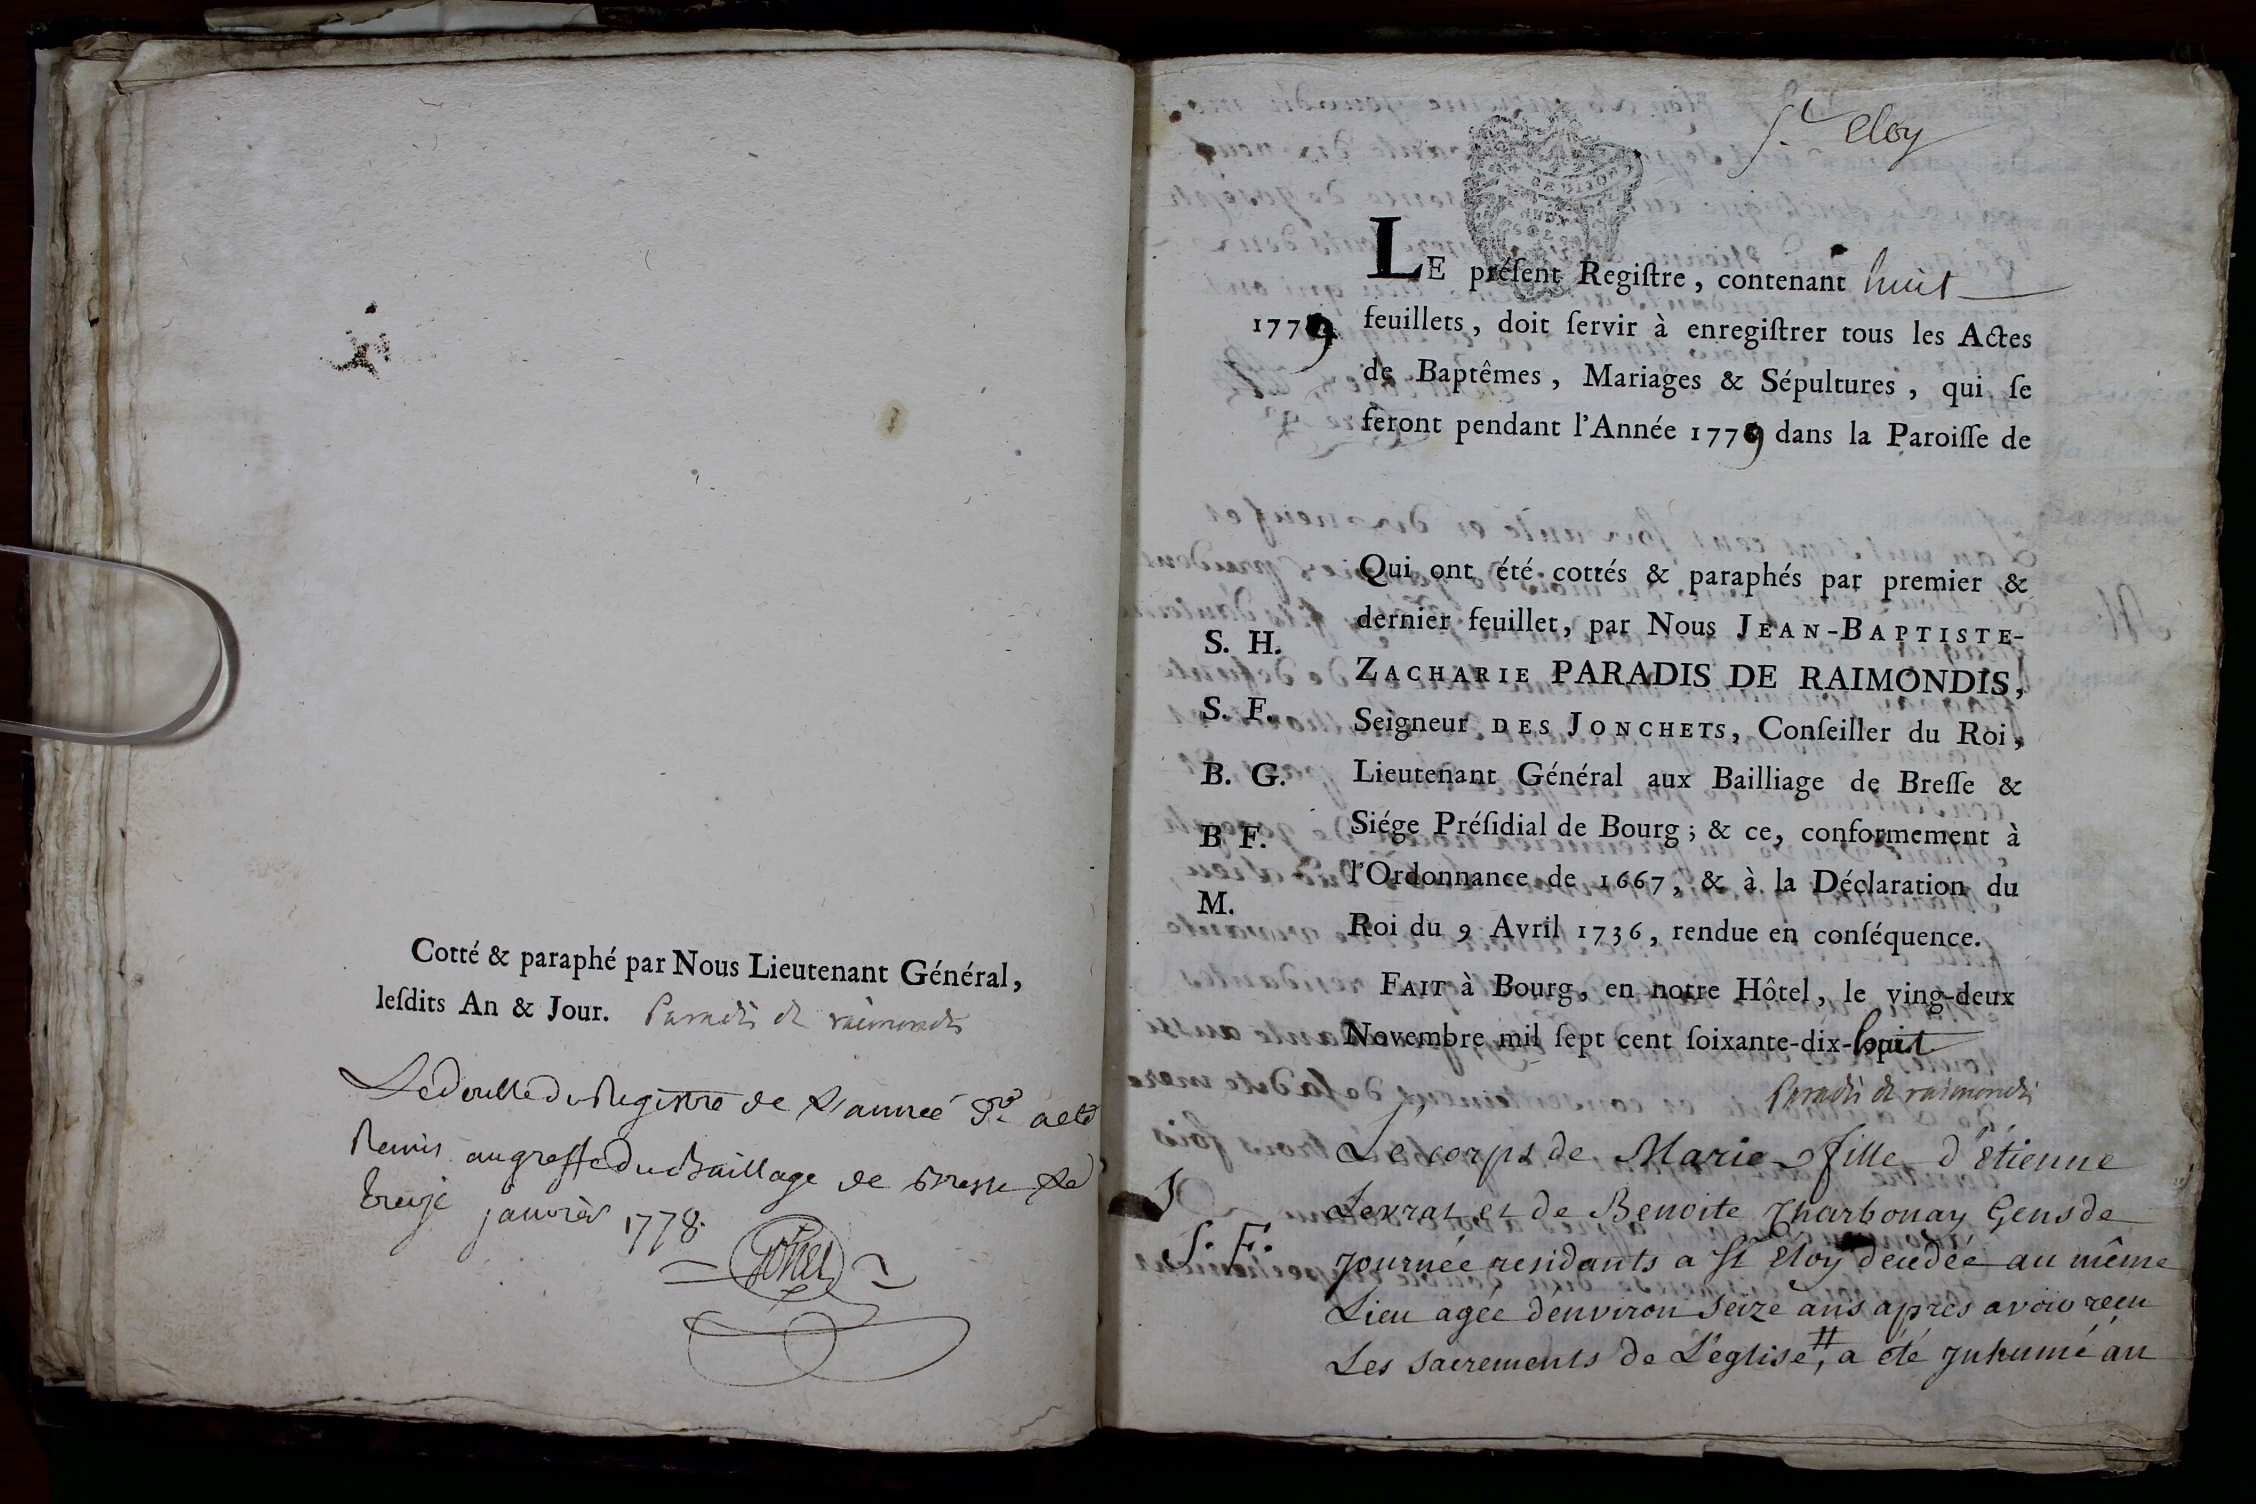 Cotté & paraphé par Nous Lieutenant Général,
leſdits An & Jour. Paradis de raimondis
Le double du Registre de L'année Dre a eté
Remis au greffe du Baillage de Bresse Le
treize janvier 1778.
St eloy
LE préſent Regiſtre, contenant huit
1779 feuillets, doit ſervir à enregiſtrer tous les Actes
de Baptêmes, Mariages & Sépultures, qui ſe
feront pendant l'Année 1779 dans la Paroiſſe de
Qui ont été cottés & paraphés par premier &
dernier feuillet, par Nous JEAN-BAPTISTE-
S. H.
ZACHARIE PARADIS DE RAIMONDIS,
S. F.
Seigneur DES JONCHETS, Conſeiller du Roi,
B. G. Lieutenant Général aux Bailliage de Breſſe &
B F. Siége Préſidial de Bourg; & ce, conformement à
l'Ordonnance de 1667, & à la Déclaration du
M.
Roi du 9 Avril 1736, rendue en conſéquence.
FAIT à Bourg, en notre Hôtel, le ving-deux
Novembre mil ſept cent ſoixante-dix-huit
Paradis de raimondis
Le corps de Marie fille d'Etienne
1 Levrat et de Benoite Charbonay Gens de
S. F. journée residants a St Eloy decedée au même
Lieu agée d'environ seize ans apres avoir reçu
Les sacrements de L'eglise, # a été inhumé au